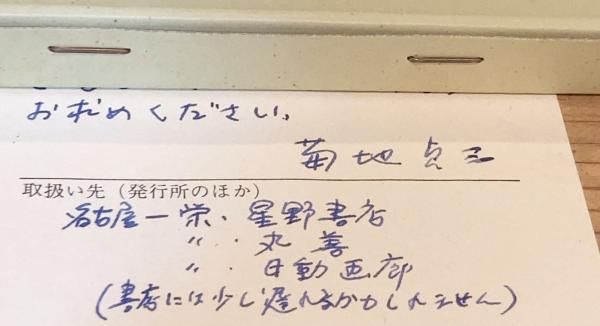 お求めください。
菊地貞三
取扱い先（発行所のほか）
名古屋一栄・星野書店
〃・丸善
〃・日動画廊
（書店には少し遅れるかもしれません）